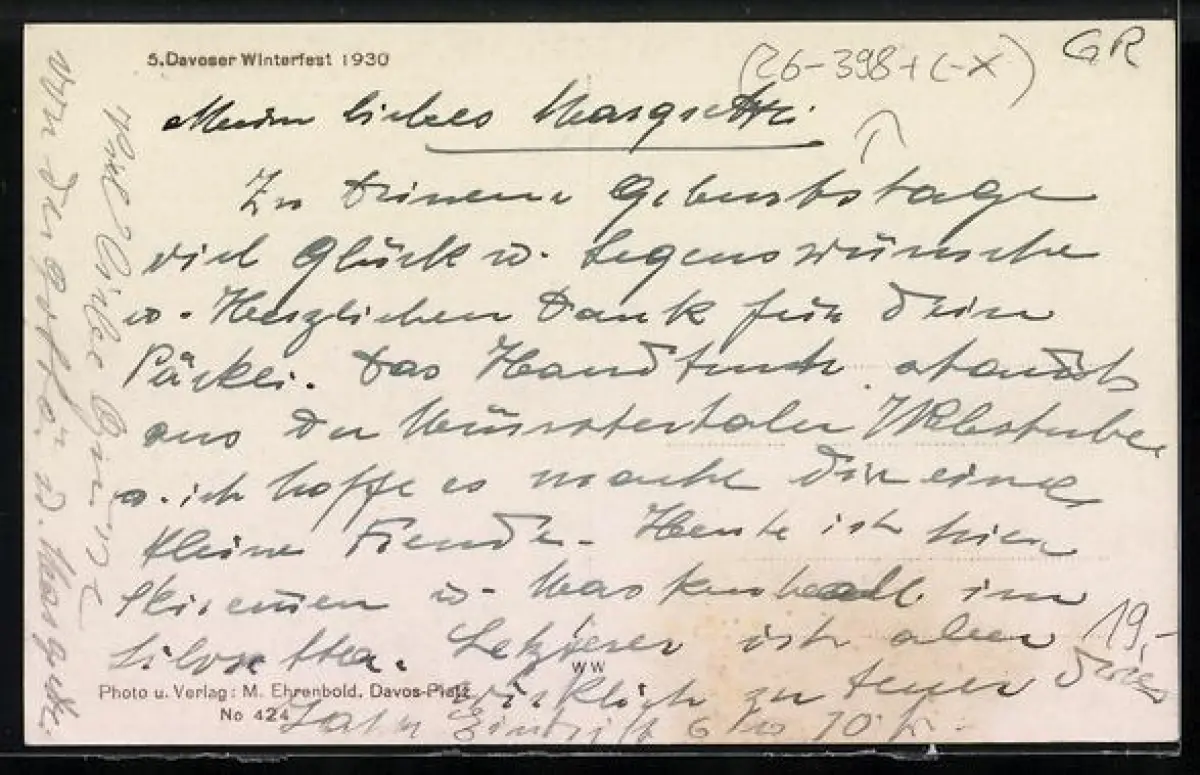 5. Davoser Winterfest 1930
(26-398+(-X)
GR
Mein liebes Margrettli.
Zu Deinem Geburtstage
viel Glück u. Segenswünsche
u. Herzlichen Dank für Dein
Päckli. Das Handtuch
aus der Münstertaler Webstube
u. ich hoffe es mache Dir eine
kleine Freude. Heute ist hier
Skirennen u. Maskenball im
Silvretta. Letzterer ist aber
wirklich zu teuer dies
Jahr Eintritt 6 10 Fr.
19,-
WW
Photo u. Verlag: M. Ehrenbold. Davos-Platz
No 424
Viel liebe
von der u. Margrit.